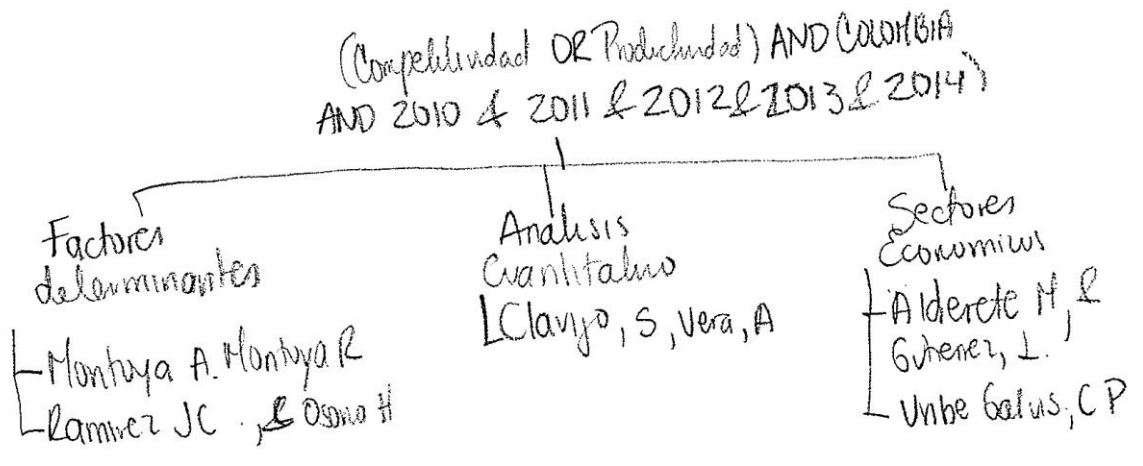 (Competitividad OR Productividad) AND COLOMBIA
AND 2010 & 2011 & 2012 & 2013 & 2014)
Factores
determinantes
Montoya A. Montoya R
Ramirez JC., & Osorio H
Análisis
Cuantitativo
Clavijo, S, Vera, A
Sectores
Económicos
Alderete M, &
Gutierrez, L.
Uribe Galvis, C P